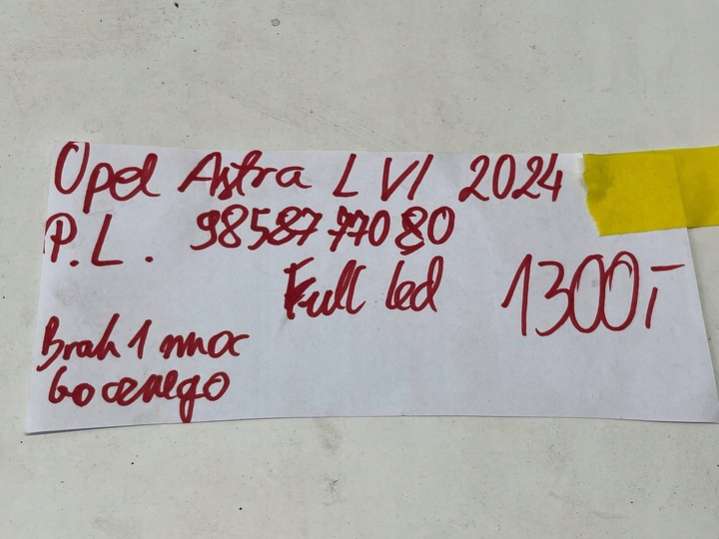 Opel Astra L VI 2024
P.L. 9858777080
Full led 1300,-
Brak 1 moc
bocznego